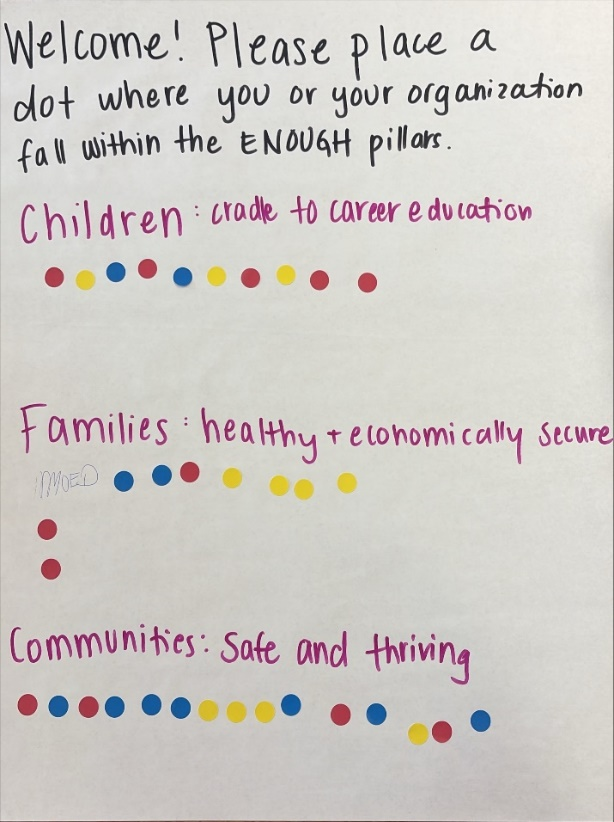 Welcome! Please place a
dot where you or your organization
fall within the ENOUGH pillars.
Children: cradle to career education
Families: healthy + economically secure
Communities: Safe and thriving